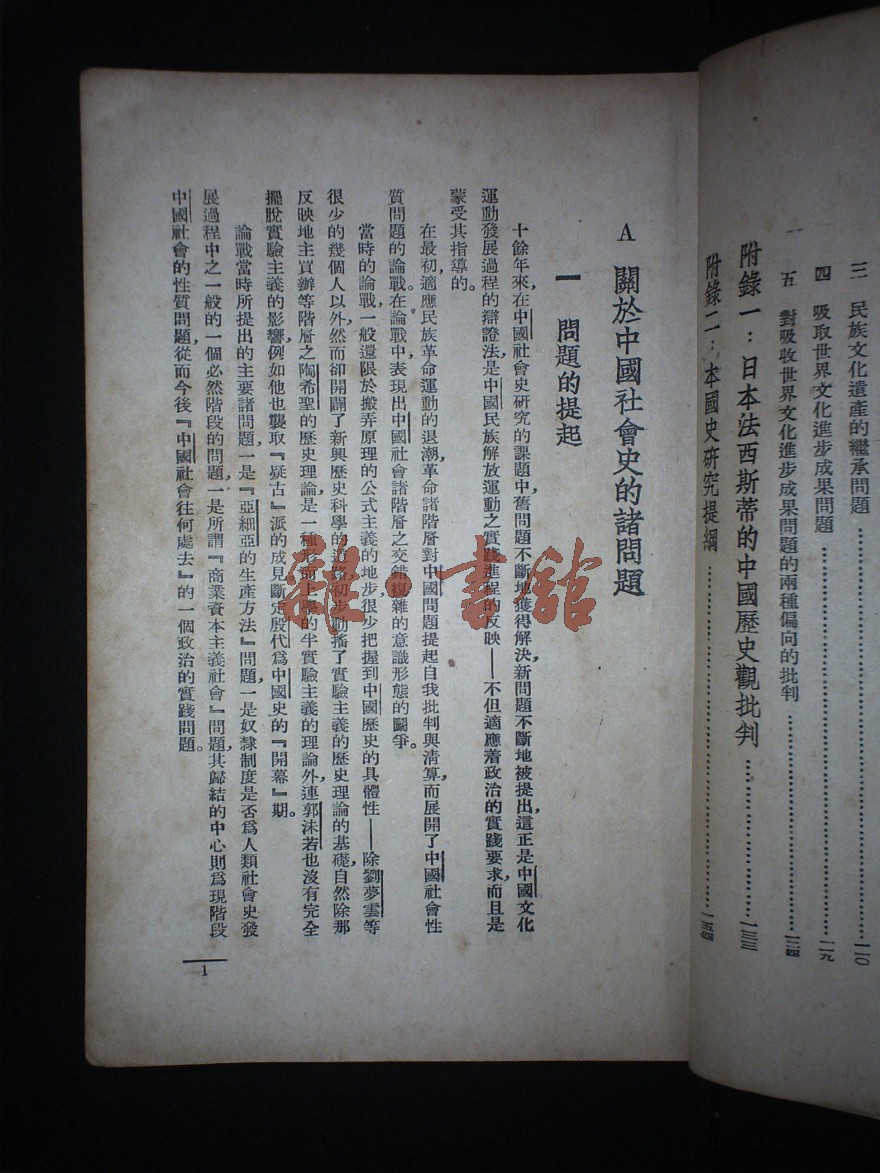 三　民族文化遺產的繼承問題……………………一一〇
四　吸取世界文化進步成果問題……………………一一九
五　對吸收世界文化進步成果問題的兩種偏向的批判……………………一二四
附錄一：日本法西斯蒂的中國歷史觀批判……………………一三三
附錄二：本國史研究提綱……………………一五四
A　關於中國社會史的諸問題
一　問題的提起
十餘年來，在中國社會史研究的課題中，舊問題不斷地獲得解決，新問題不斷地被提出，這正是中國文化
運動發展過程的辯證法，是中國民族解放運動之實踐進程的反映——不但適應着政治的實踐要求，而且是
蒙受其指導的。
在最初，適應民族革命運動的退潮，革命諸階層對中國問題提起自我批判與清算，而展開了中國社會性
質問題的論戰。在論戰中，表現出中國社會諸階層之交錯複雜的意識形態的鬭爭。
當時的論戰，一般還限於搬弄原理的公式主義的地步，很少把握到中國歷史的具體性——除劉夢雲等
很少的幾個人以外。然而卻開闢了新興歷史科學的道路，初步動搖了實驗主義的歷史理論的基礎。自然，除那
反映地主買辦等階層之陶希聖的歷史理論，是一種形而上學的半實驗主義的理論外，連郭沫若也沒有完全
擺脫實驗主義的影響，例如他也襲取『疑古』派的成見，斷定殷代爲中國史的『開幕』期。
論戰當時所提出的主要諸問題，一是『亞細亞的生產方法』問題，一是奴隸制度是否爲人類社會史發
展過程中之一般的一個必然階段的問題，一是所謂『商業資本主義社會』問題，其歸結的中心則爲現階段
中國社會的性質問題，從而今後『中國社會往何處去』的一個政治的實踐問題。
1
雜·書館